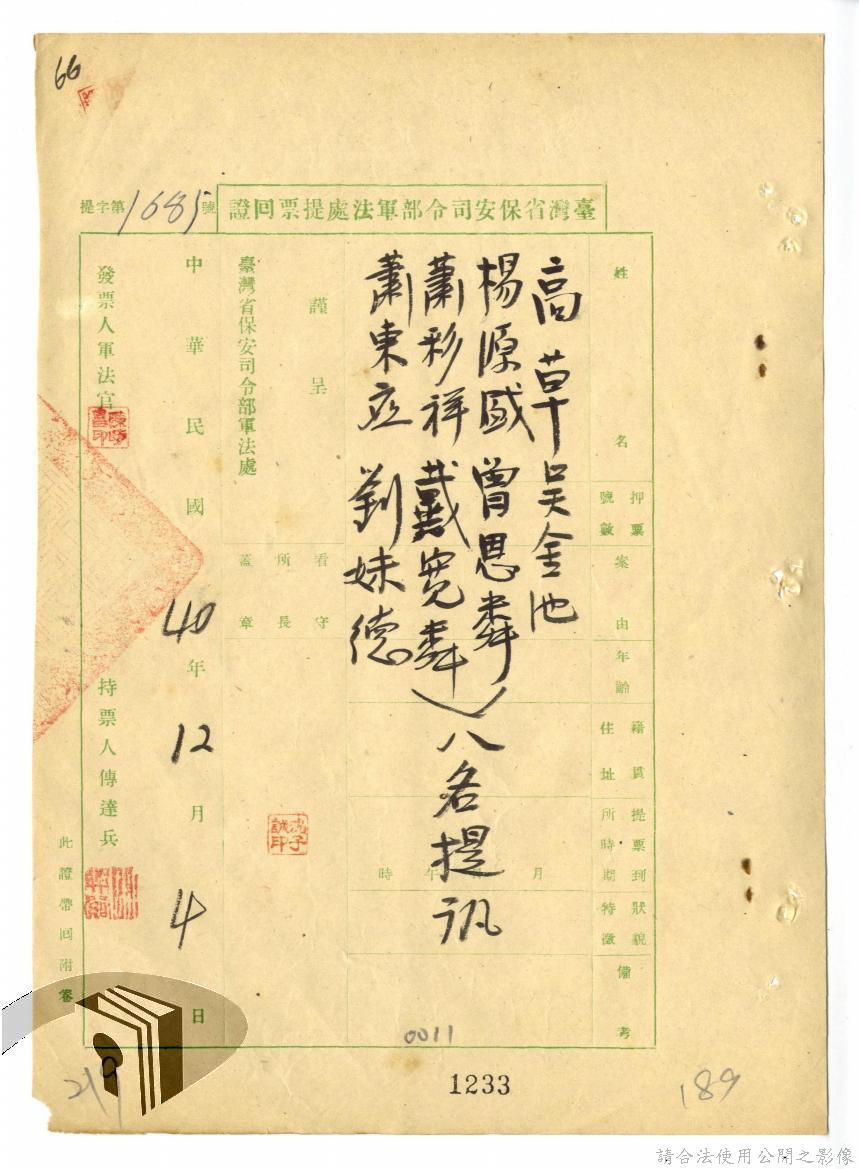 66
臺灣省保安司令部軍法處提票回證
提字第1685號
姓名
押票號數
案由
年齡
籍貫住址
提票到所時期
狀貌特徵
備考
高草 吳金池
楊源盛 曾恩
蕭彩祥 戴寬
蕭東 劉妹德
八名提訊
月 午 時
謹呈
臺灣省保安司令部軍法處
看守所長蓋章
中華民國40年12月4日
發票人軍法官
持票人傳達兵
此證帶回附卷
0011
1233
189
219
請合法使用公開之影像